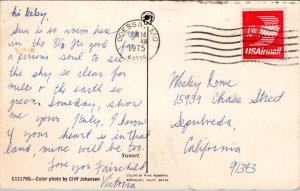 Hi Baby,
Sun is so warm here
in the 80s. Its good for
a persons soul to see
the sky so clear for
miles & the earth so
green. Someday, show
me your Italy, I know
if your heart is in that
land, mine will be too.
Sunset
Love you Fairchild,
Victoria
C12179G—Color photo by Cliff Johansen
COLOR BY MIKE ROBERTS
BERKELEY, CALIF. 94710
ODESSA, MO
14
AM
1975
US Airmail
Wesley Rome
15939 Chase Street
Sepulveda,
California
91343